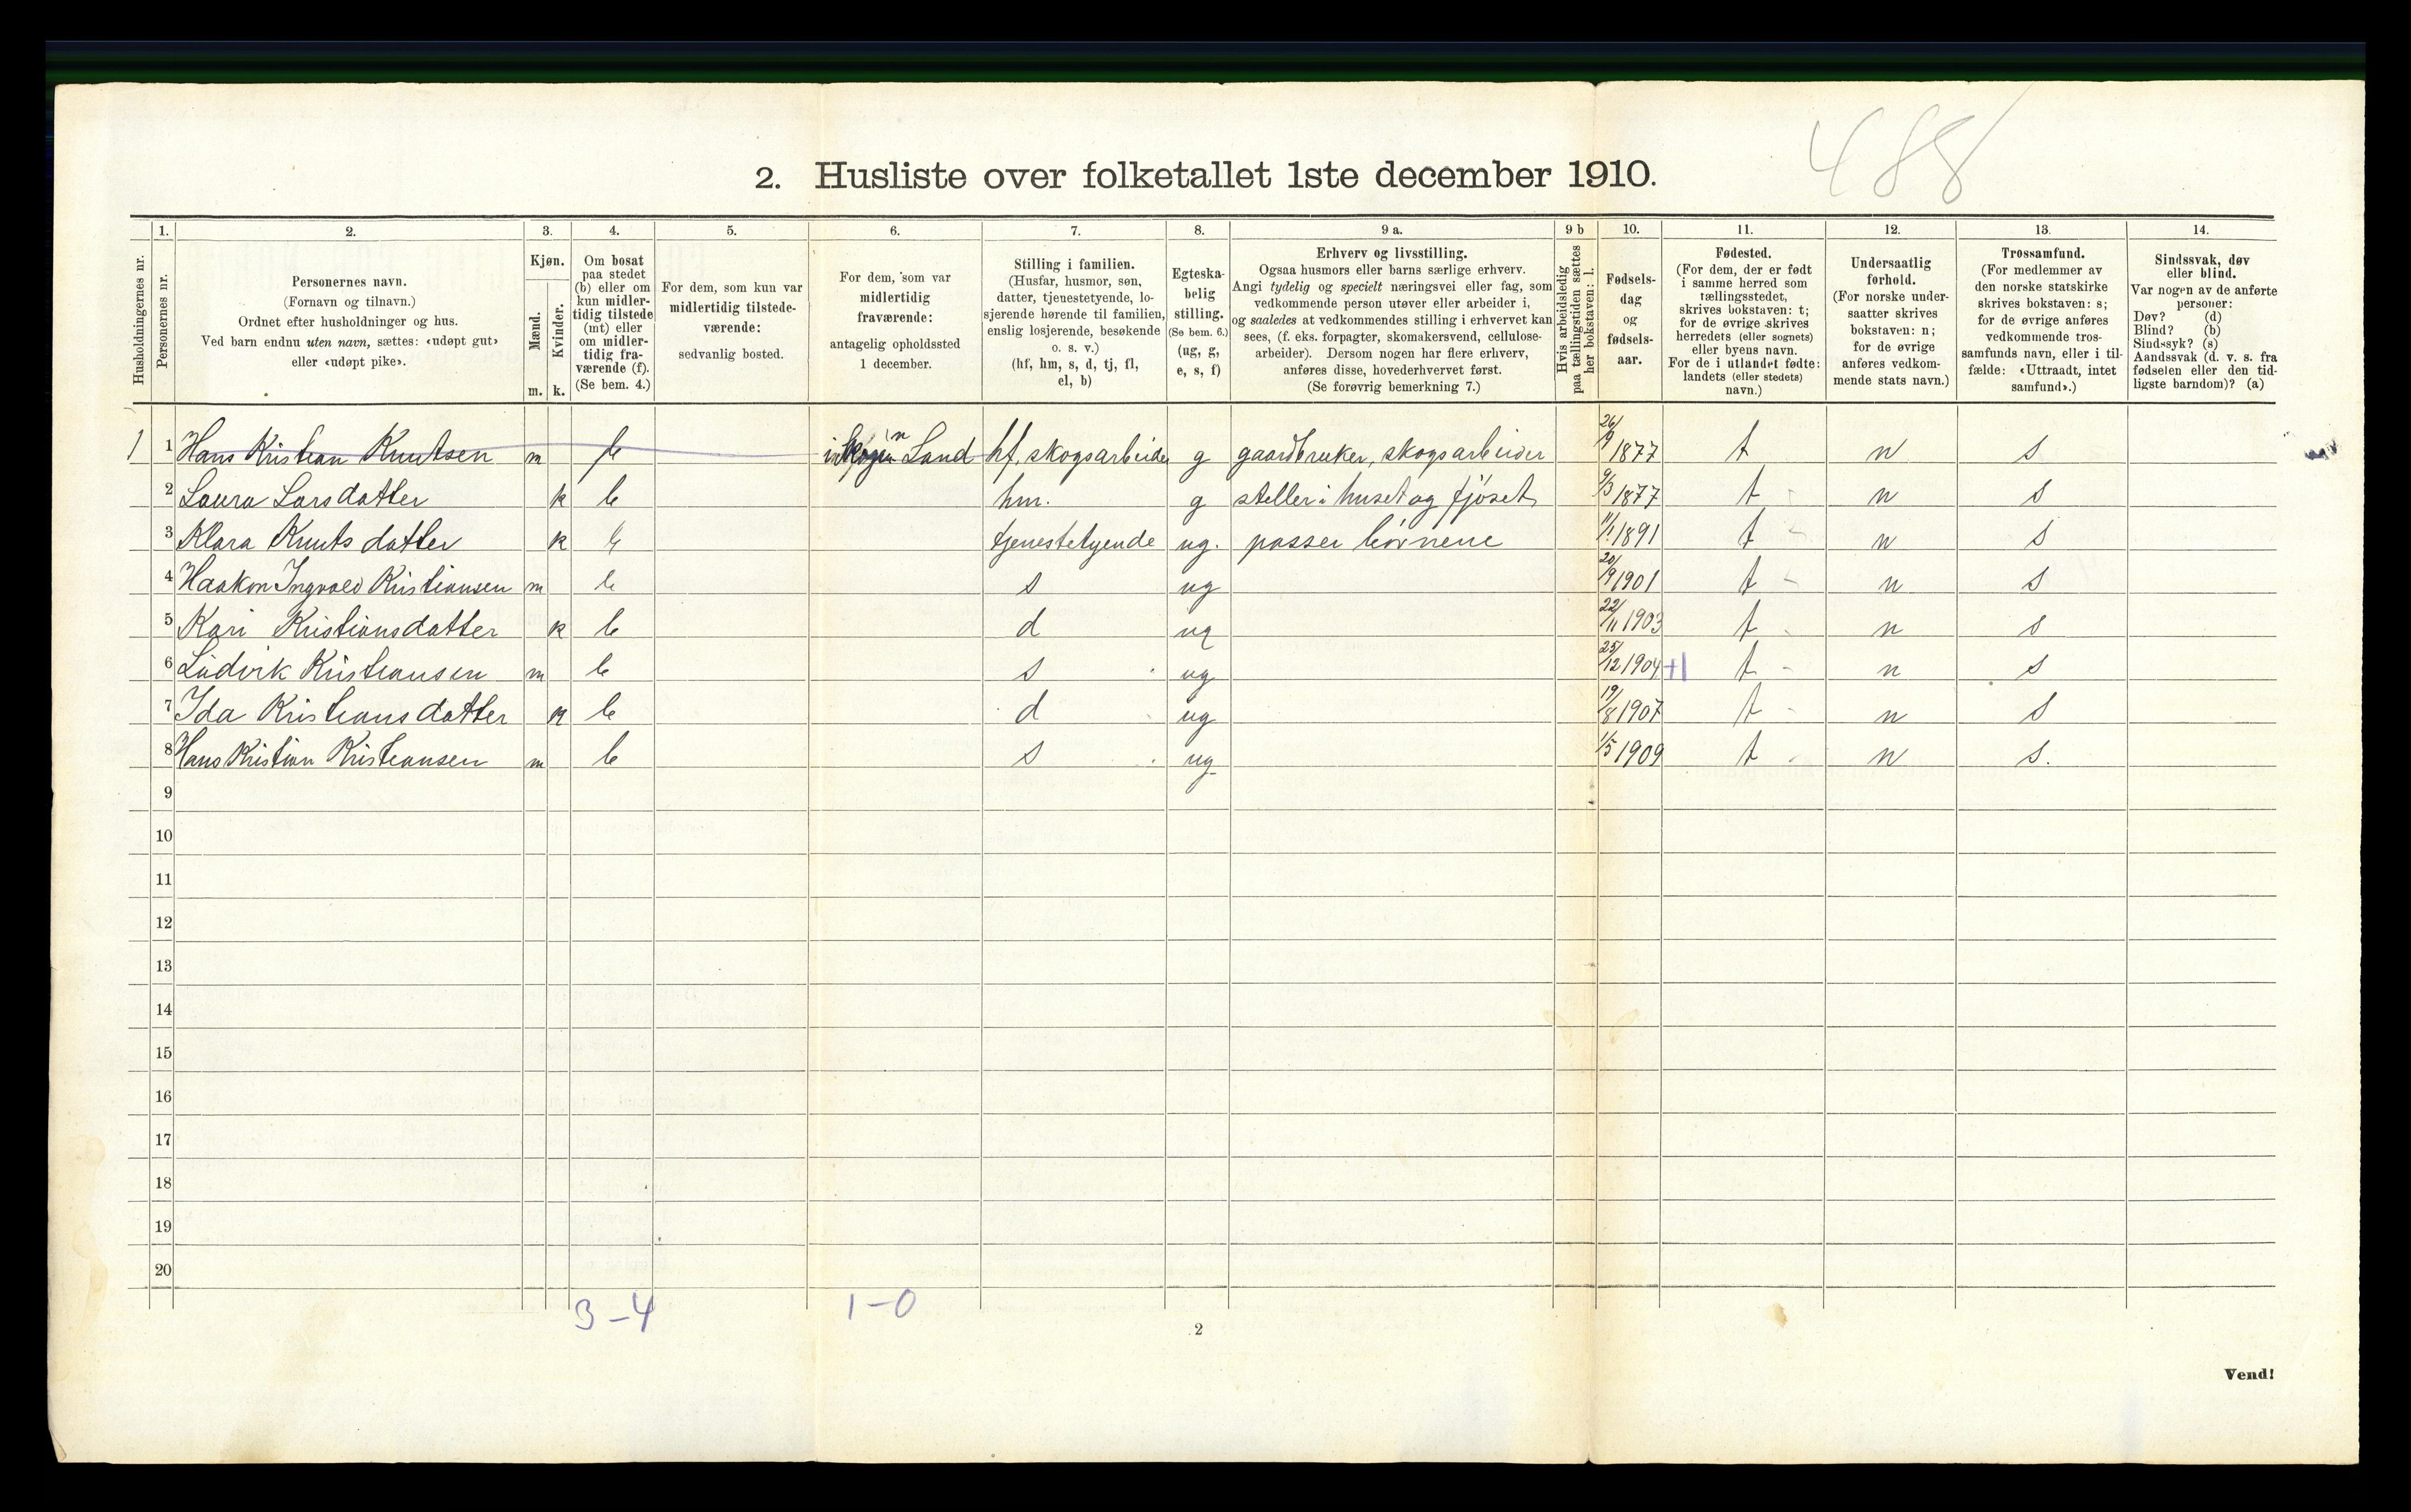 488
2. Husliste over folketallet 1ste december 1910.
Husholdningernes nr.
1.
Personernes nr.
2.
Personernes navn.
(Fornavn og tilnavn.)
Ordnet efter husholdninger og hus.
Ved barn endnu uten navn, sættes: «udøpt gut»
eller «udøpt pike».
3.
Kjøn.
Mænd.
m.
Kvinder.
k.
4.
Om bosat
paa stedet
(b) eller om
kun midler-
tidig tilstede
(mt) eller
om midler-
tidig fra-
værende (f).
(Se bem. 4.)
5.
For dem, som kun var
midlertidig tilstede-
værende:
sedvanlig bosted.
6.
For dem, som var
midlertidig
fraværende:
antagelig opholdssted
1 december.
7.
Stilling i familien.
(Husfar, husmor, søn,
datter, tjenestetyende, lo-
sjerende hørende til familien,
enslig losjerende, besøkende
o. s. v.)
(hf, hm, s, d, tj, fl,
el, b)
8.
Egteska-
belig
stilling.
(Se bem. 6.)
(ug, g,
e, s, f)
9 a.
Erhverv og livsstilling.
Ogsaa husmors eller barns særlige erhverv.
Angi tydelig og specielt næringsvei eller fag, som
vedkommende person utøver eller arbeider i,
og saaledes at vedkommendes stilling i erhvervet kan
sees, (f. eks. forpagter, skomakersvend, cellulose-
arbeider). Dersom nogen har flere erhverv,
anføres disse, hovederhvervet først.
(Se forøvrig bemerkning 7.)
9 b
Hvis arbeidsledig
paa tællingstiden sættes
her bokstaven: l.
10.
Fødsels-
dag
og
fødsels-
aar.
11.
Fødested.
(For dem, der er født
i samme herred som
tællingsstedet,
skrives bokstaven: t;
for de øvrige skrives
herredets (eller sognets)
eller byens navn.
For de i utlandet fødte:
landets (eller stedets)
navn.)
12.
Undersaatlig
forhold.
(For norske under-
saatter skrives
bokstaven: n;
for de øvrige
anføres vedkom-
mende stats navn.)
13.
Trossamfund.
(For medlemmer av
den norske statskirke
skrives bokstaven: s;
for de øvrige anføres
vedkommende tros-
samfunds navn, eller i til-
fælde: «Uttraadt, intet
samfund».)
14.
Sindssvak, døv
eller blind.
Var nogen av de anførte
personer:
Døv? (d)
Blind? (b)
Sindssyk? (s)
Aandssvak (d. v. s. fra
fødselen eller den tid-
ligste barndom)? (a)
1 1 Hans Kristian Knutsen m Land hf, skogsarbeider g gaardbruker, skogsarbeider 26/9 1877 t n s
2 Laura Larsdatter k b hm. g steller i huset og fjøset 9/3 1877 t n s
3 Klara Knutsdatter k b tjenestetyende ug. passer børnene 11/1 1891 t n s
4 Haakon Ingvald Kristiansen m b s ug 20/9 1901 t n s
5 Kari Kristiansdatter k b d ug 22/11 1903 t n s
6 Ludvik Kristiansen m b s ug 25/12 1904 +1 t n s
7 Ida Kristiansdatter k b d ug 19/8 1907 t n s
8 Hans Kristian Kristiansen m b s ug 1/5 1909 t n s.
9
10
11
12
13
14
15
16
17
18
19
20
3-4 1-0
2
Vend!